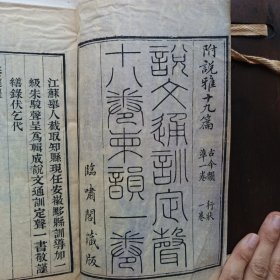 附說雅十九篇
古今韻準一卷
行狀一卷
說文通訓定聲
十八卷柬韻一卷
臨嘯閣藏版
江蘇舉人截取知縣現任安徽黟縣訓導加一
級朱駿聲呈爲輯成說文通訓定聲一書敬謹
繕錄伏乞代